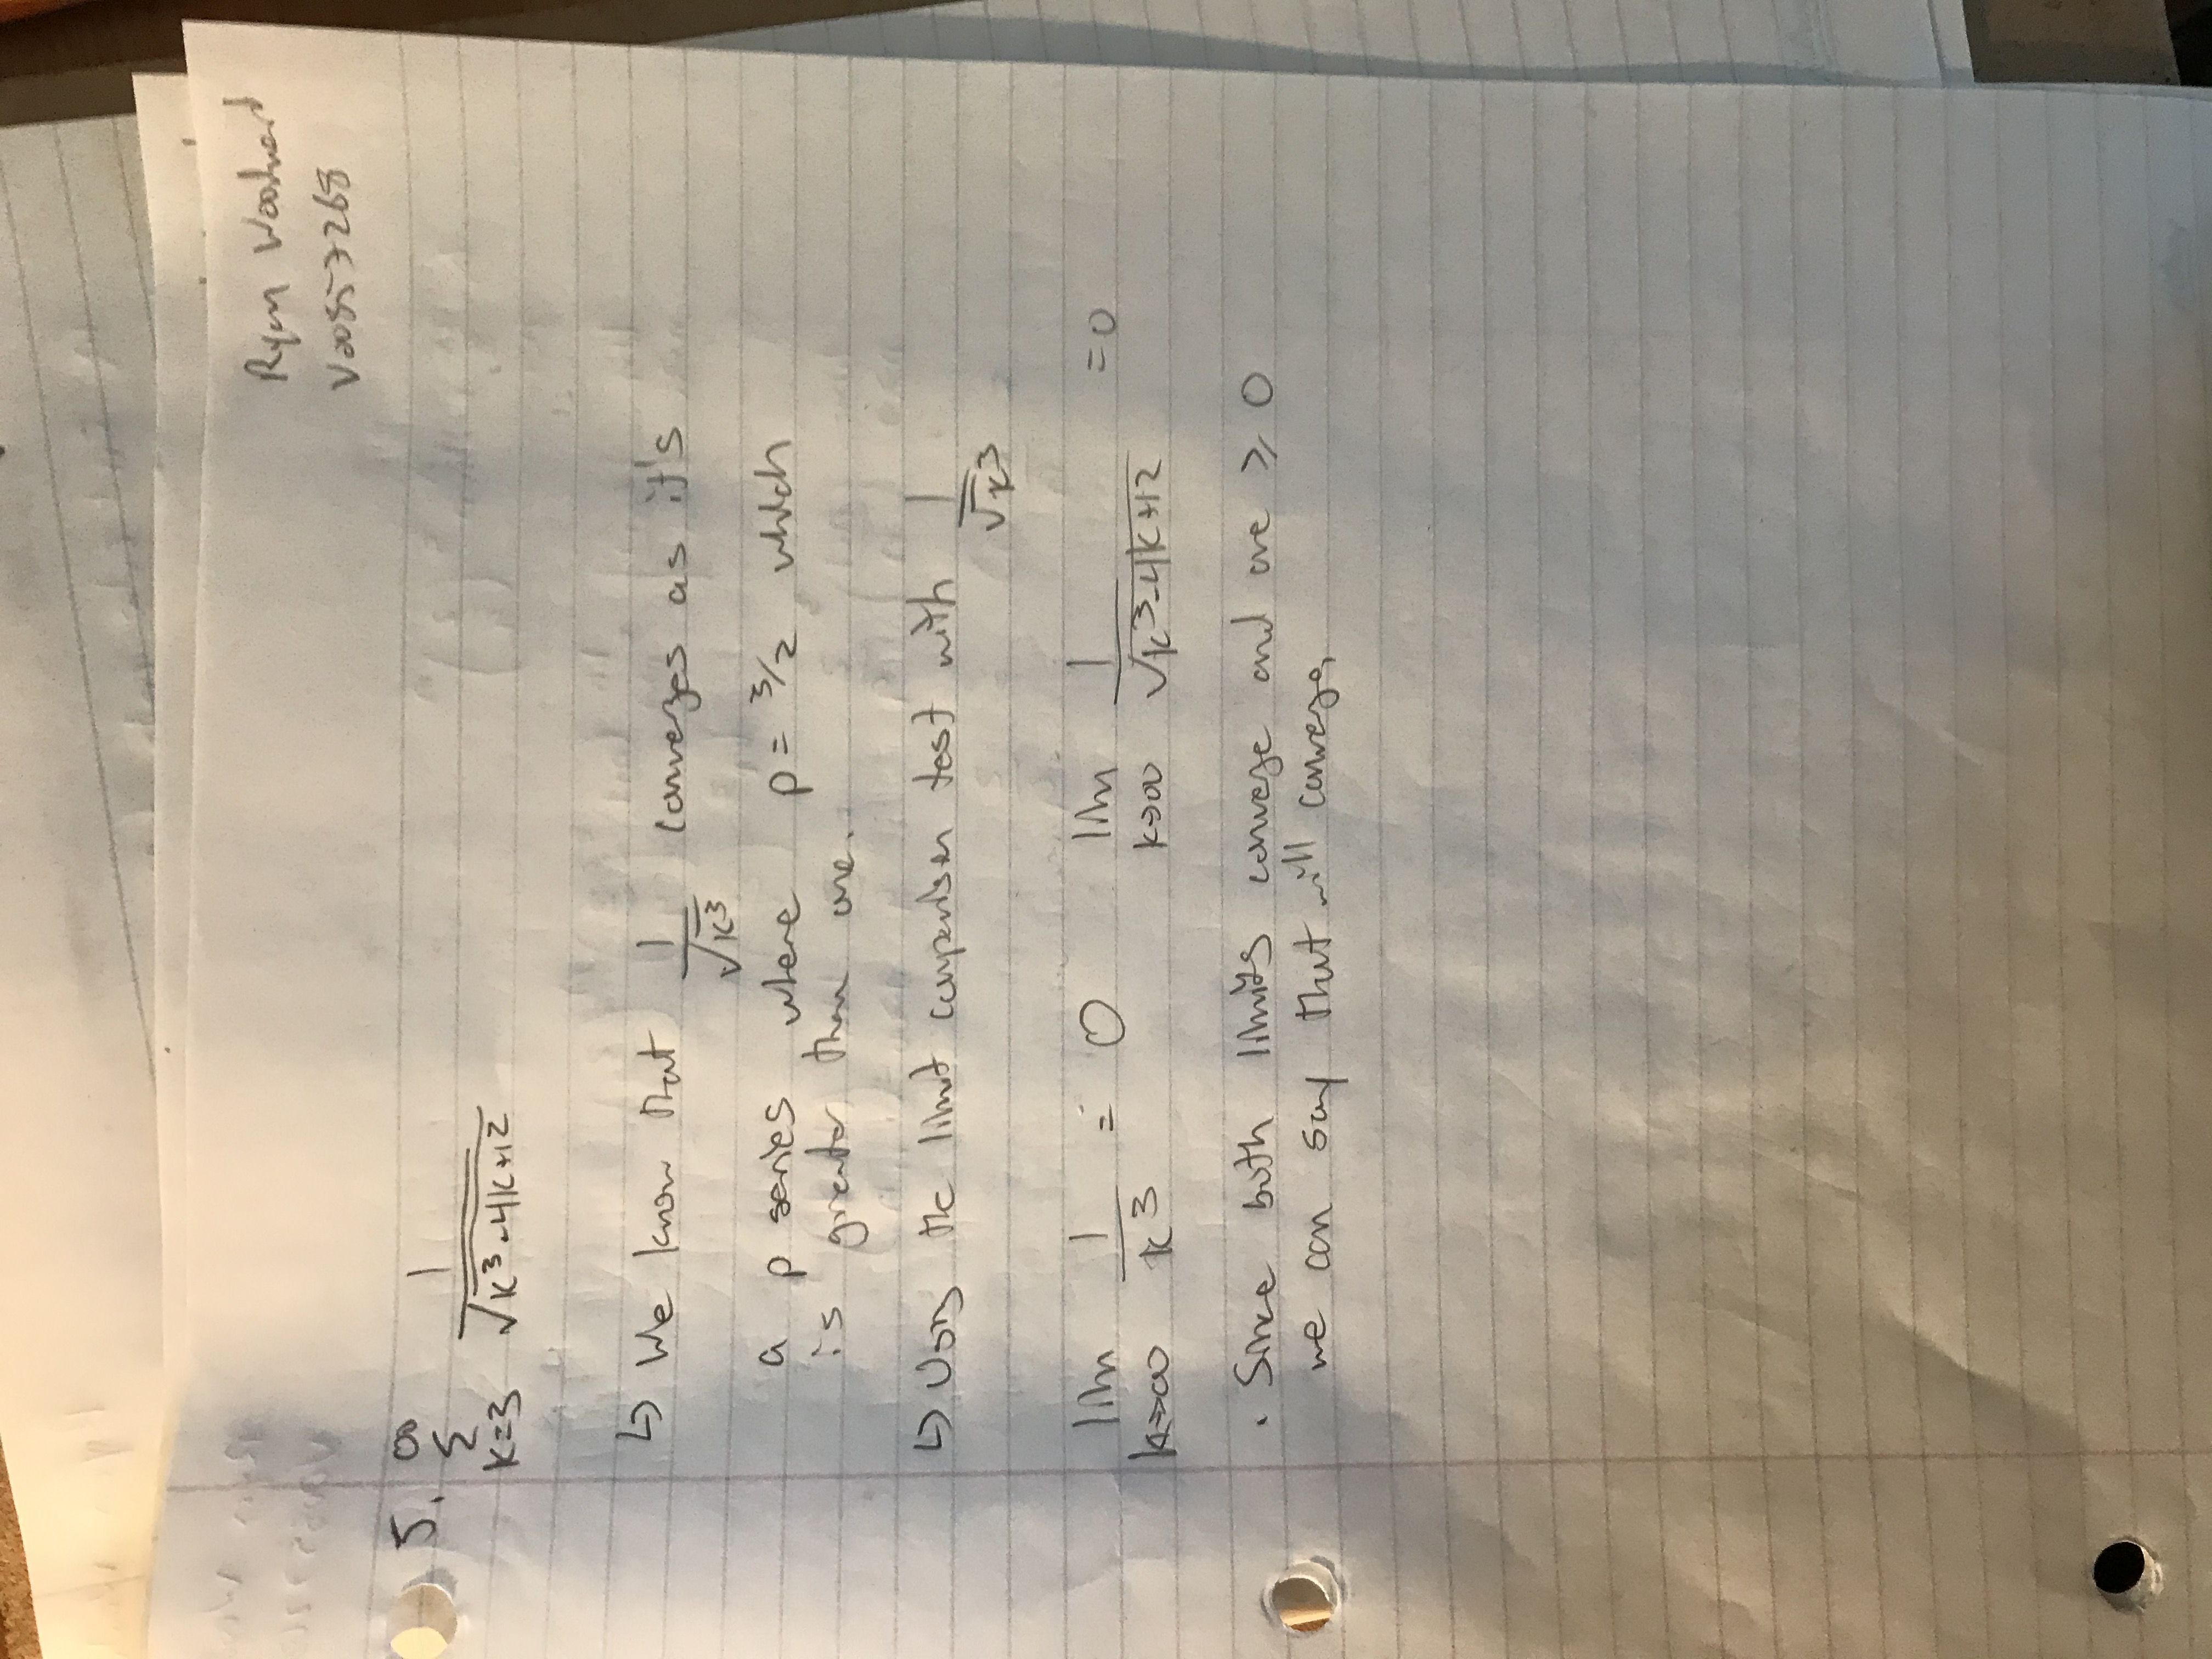 Ryan Woodward
V00857268
5. ∞ Σ k=3 1/√(k³-4k+12)
↳ We know that 1/√(k³) converges as it's
a p series where p = 3/2 which
is greater than one.
↳ Using the limit comparison test with 1/√k³
lim k→∞ 1/k³ = 0 lim k→∞ 1/√(k³-4k+12) = 0
. Since both limits converge and are ≥ 0
we can say that will converge.